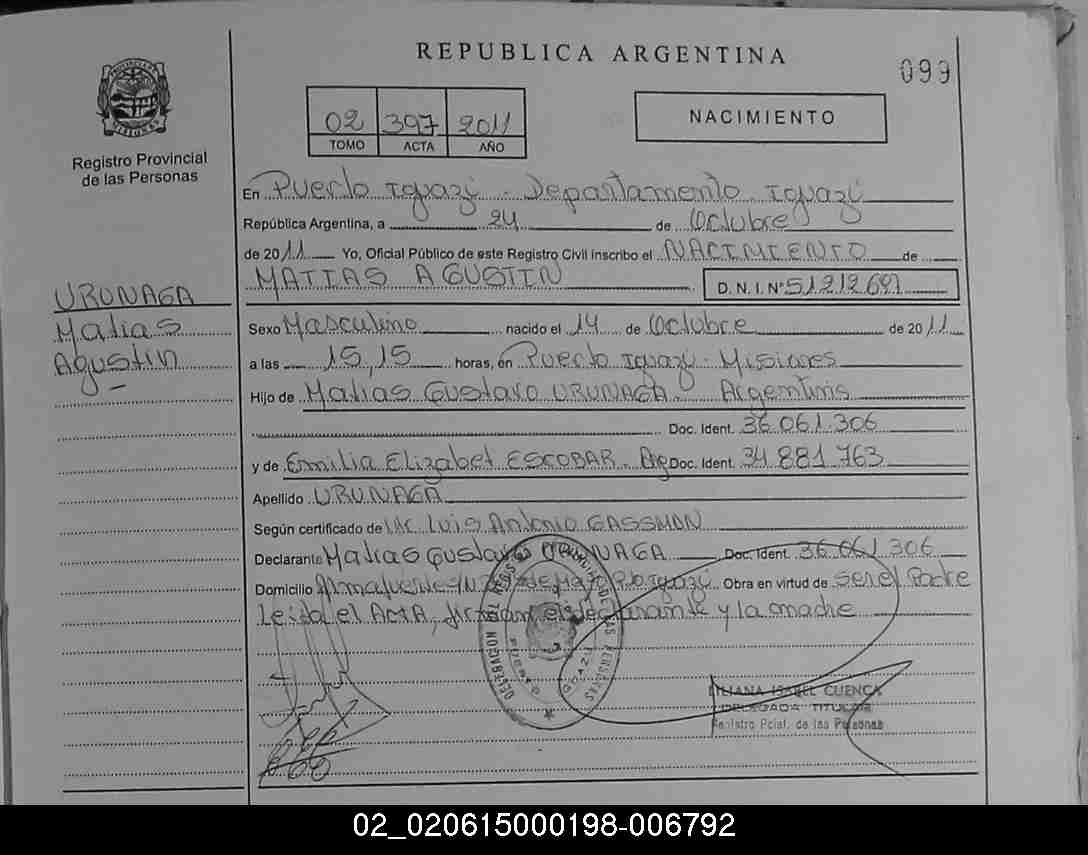 REPUBLICA ARGENTINA
099
PROVINCIA DE MISIONES
Registro Provincial
de las Personas
02 397 2011
TOMO ACTA AÑO
NACIMIENTO
En Puerto Iguazú - Departamento Iguazú
República Argentina, a 24 de Octubre
de 2011 Yo, Oficial Público de este Registro Civil inscribo el NACIMIENTO de
MATIAS AGUSTIN D. N. I. Nº 51.212.691
URUNAGA
Matias
Agustin
Sexo Masculino nacido el 14 de Octubre de 2011
a las 15,15 horas, en Puerto Iguazú - Misiones
Hijo de Matias Gustavo URUNAGA - Argentinis
Doc. Ident. 36.061.306
y de Emilia Elizabet ESCOBAR. Arg Doc. Ident. 34.881.763
Apellido URUNAGA
Según certificado de Luis Antonio GASSMAN
Declarante Matias Gustavo URUNAGA Doc. Ident. 36.061.306
Domicilio de Mayo Pto Iguazú Obra en virtud de ser el Padre
Leida el ActA, firman el declarante y la madre
DELEGACION REGISTRO PROVINCIAL DE LAS PERSONAS
PUERTO IGUAZU
LILIANA ISABEL CUENCA
DELEGADA TITULAR
Registro Pcial. de las Personas
02_020615000198-006792